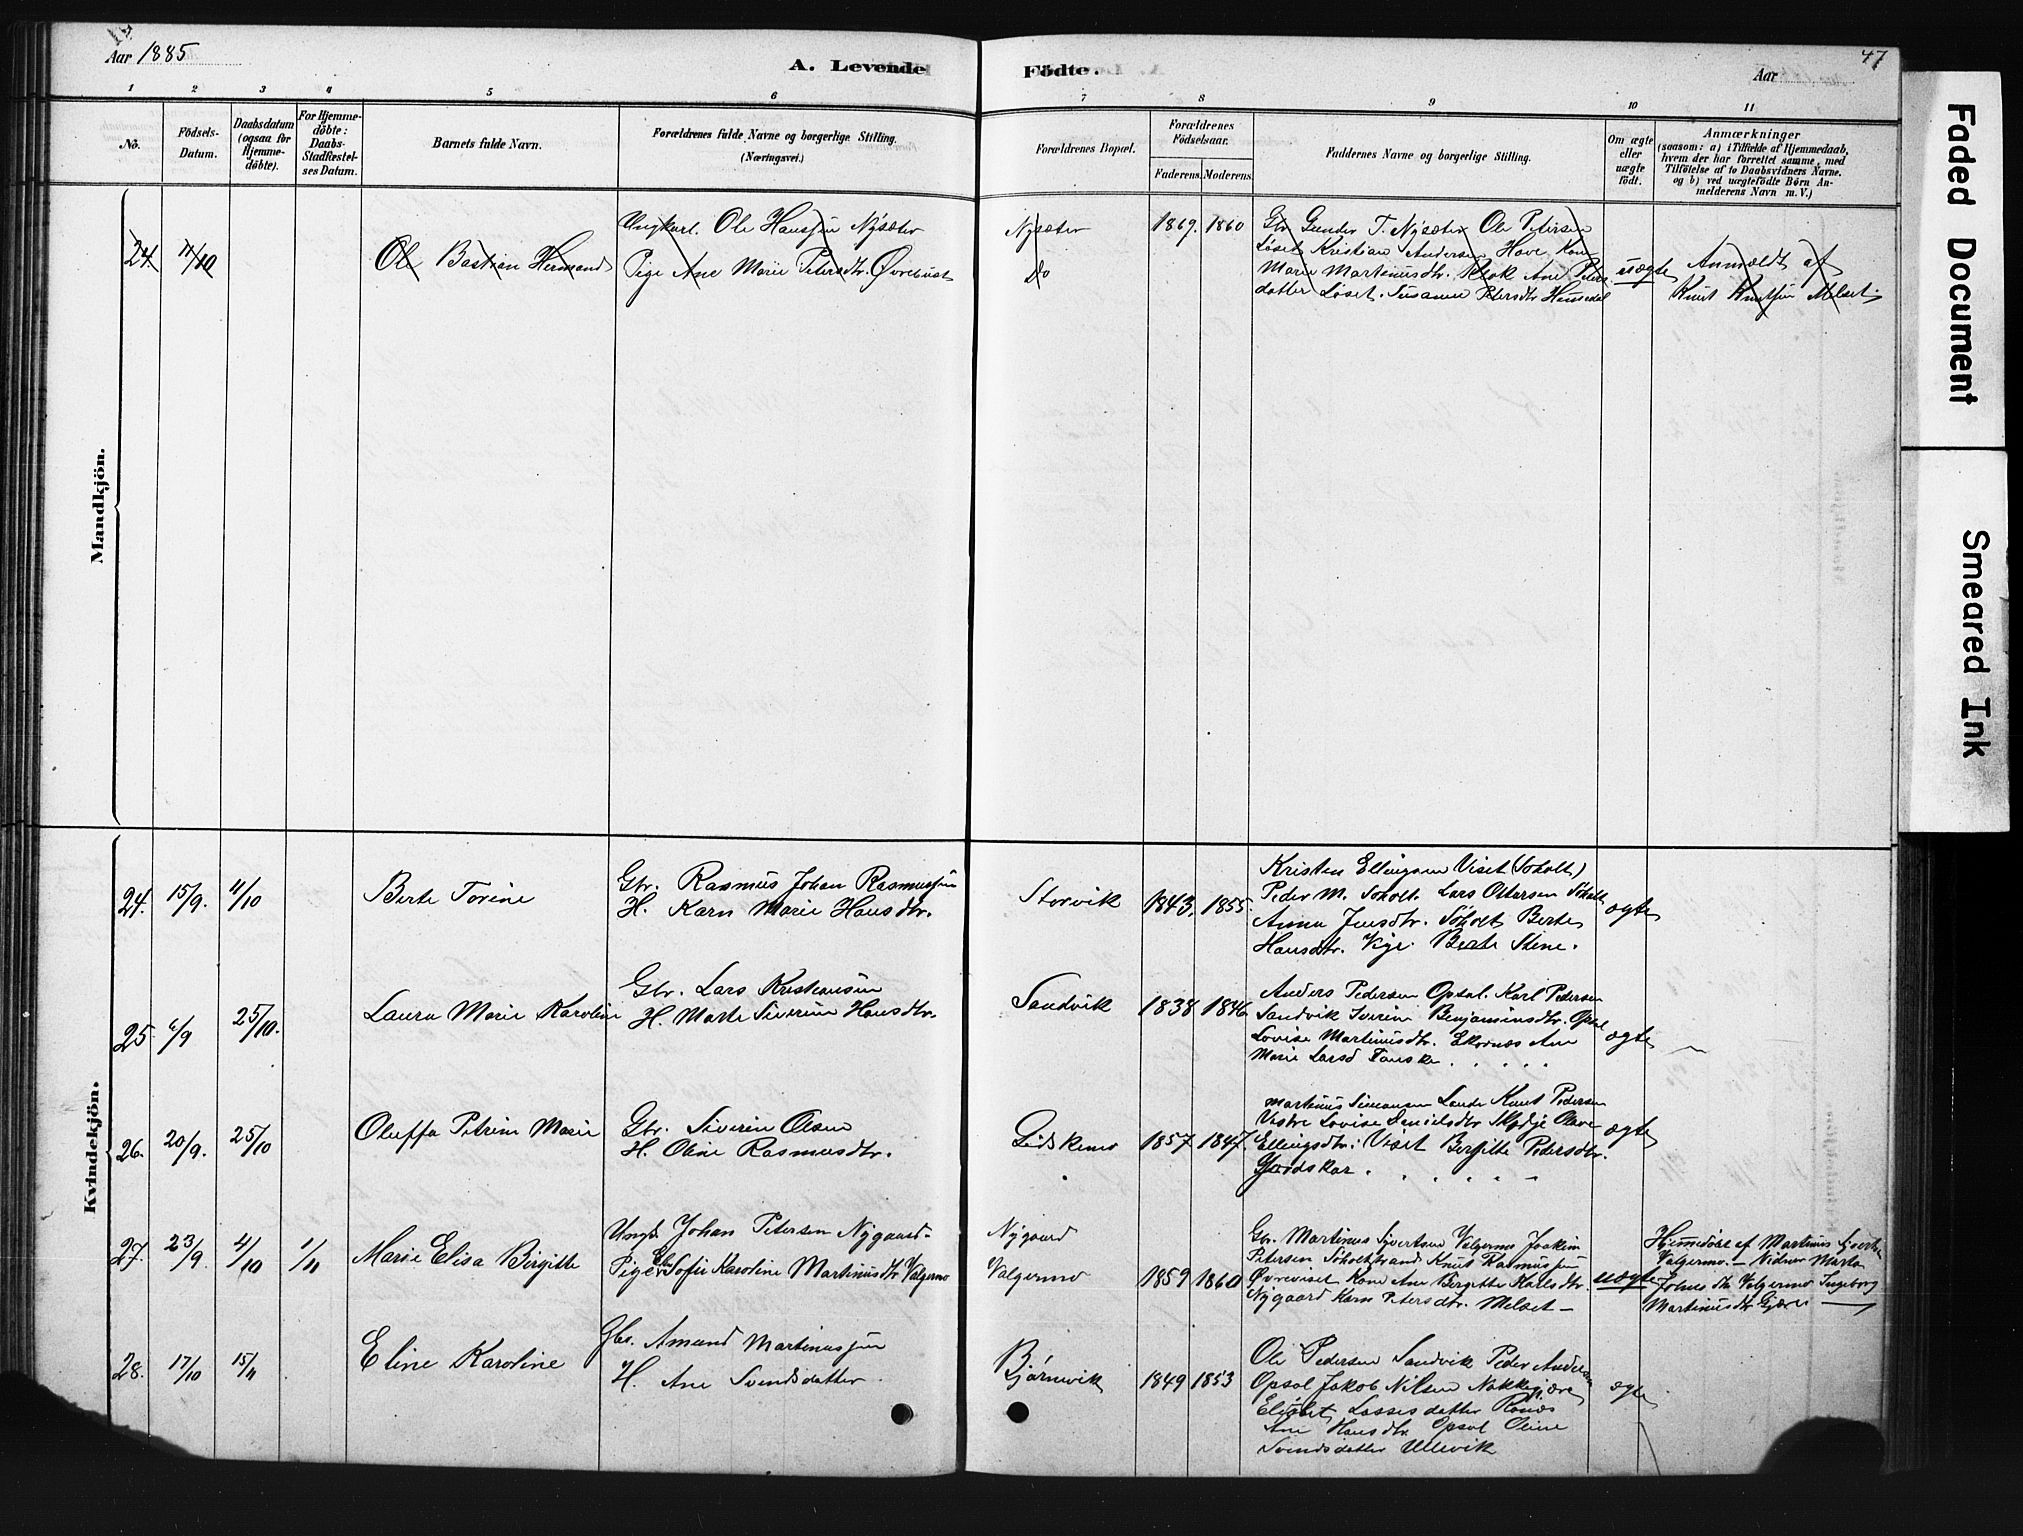 Aar 1885
A. Levende
Födte.
Aar
47
1 2 3 4 5 6 7 8 9 10 11
No.
Födsels-
Datum.
Daabsdatum
(ogsaa for
Hjemme-
döbte).
For Hjemme-
döbte:
Daabs-
Stadfæstel-
ses Datum.
Barnets fulde Navn.
Forældrenes fulde Navne og borgerlige Stilling.
(Næringsvei.)
Forældrenes Bopæl.
Forældrenes
Födselsaar.
Faderens.
Moderens.
Faddernes Navne og borgerlige Stilling.
Om ægte
eller
uægte
födt.
Anmærkninger
(saasom: a) i Tilfælde af Hjemmedaab,
hvem der har forrettet samme, med
Tilföielse af to Daabsvidners Navne.
og b) ved uægtefödte Börn An-
melderens Navn m. V.)
Mandkjön.
24. 11/10
Ole Bastian Hermand
Ungkarl. Ole Hanssen Nysæter
Pige Ane Marie Petersdtr. Øvrebust
Nysæter
Do
1869. 1860
Gbr Gunder T. Nysæter Ole Petersen
Løset Kristian Andersen Hove Kone
Marie Martinusdtr. Klok Ane Peters
datter Løset. Susanne Petersdtr Hussedal
uægte
Anmeldt af
Knut Knutsen Melset.
Kvindekjön.
24. 15/9. 11/10
Berte Torine
Gbr. Rasmus Johan Rasmussen
H. Karn Marie Hansdtr.
Storvik
1843. 1855.
Kristen Ellingsen Viset (Soholt)
Peder M. Soholt. Lars Ottersen Soholt
Anna Jensdtr. Søholt Berte
Hansdtr. Vige. Berte Stene.
ægte
25. 6/9 25/10.
Laura Marie Karoline
Gbr. Lars Kristiansen
H. Marte Siverine Hansdtr.
Sandvik
1838 1846.
Anders Pedersen Opsal. Karl Pedersen
Sandvik Iverine Benjaminsdtr. Opsal
Lovise Martinusdtr. Ekornæs Ane
Marie Larsd Fauske
ægte
26. 20/9. 25/10
Oluffa Petrine Marie
Gbr. Siverin Olsen
H. Oline Rasmusdtr.
Gidskemo
1857 1847.
Martinus Simonsen Lande Knut Pedersen
Vestre Lovise Danielsdtr Skodje Olave
Ellingsdtr. Viset Bergitte Pedersdtr.
Gjærdskar
ægte
27. 23/9. 4/10 1/11
Marie Elisa Birgitte
Ungk. Johan Petersen Nygaard.
Pige Sofie Karoline Martinusdtr Valgermo
Nygaard
Valgermo
1859 1860
Gbr. Martinus Sivertsen Valgermo Joakim
Petersen Soholtstrand Knut Rasmussen
Øvreviset Kone Ane Bergitte Karlsdtr.
Nygaard Karn Petersdtr. Melset
uægte
Hjemmedøbt af Martinus Sivertsen
Valgermo. Vidner Marta
Johns dtr Valgermo Ingeborg
Martinusdtr Gjære
28. 17/10 15/11
Eline Karoline
Gbr. Amund Martinussen
H. Ane Svendsdatter
Bjørnevik
1849 1853
Ole Pedersen Sandvik Peder Andersen
Opsal Jakob Nilsen Nakkegjære
Elisabet Lassesdatter Rønæs
Ane Hansdtr. Opsal Oline
Svendsdatter Ullevik
ægte
Faded Document
Smeared Ink